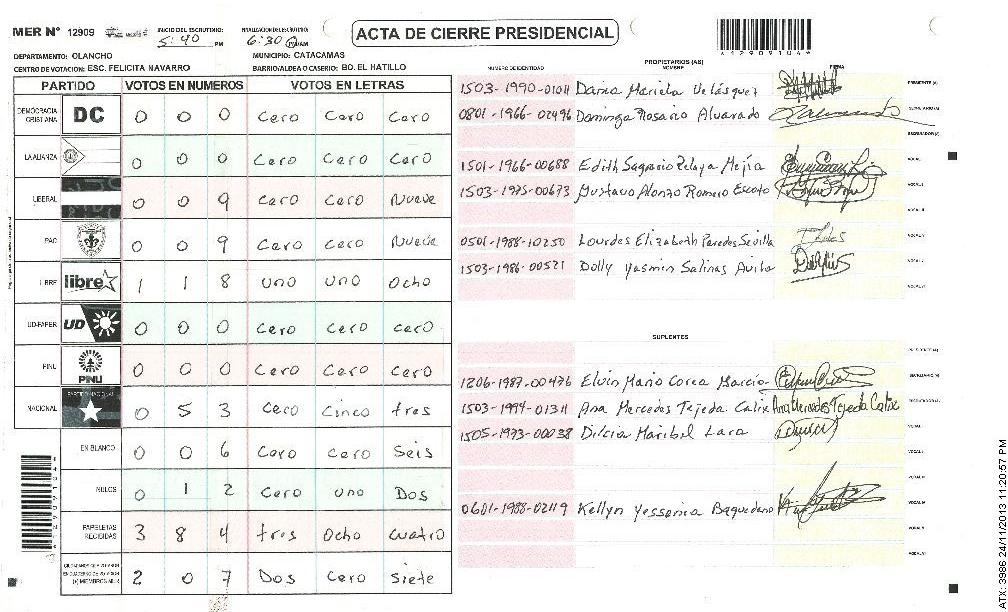 MER Nº 12909
INICIO DEL ESCRUTINIO: 5:40 PM
FINALIZACION DEL ESCRUTINIO: 6:30 PM/AM
ACTA DE CIERRE PRESIDENCIAL
*12909104*
DEPARTAMENTO: OLANCHO
MUNICIPIO: CATACAMAS
CENTRO DE VOTACION: ESC. FELICITA NAVARRO
BARRIO/ALDEA O CASERIO: BO. EL HATILLO
PARTIDO VOTOS EN NUMEROS VOTOS EN LETRAS
DEMOCRACIA CRISTIANA DC 0 0 0 Cero Cero Cero
LA ALIANZA 0 0 0 Cero Cero Cero
LIBERAL 0 0 9 Cero Cero Nueve
PAC 0 0 9 Cero Cero Nueve
LIBRE libre 1 1 8 uno uno Ocho
UD-FAPER UD 0 0 0 Cero Cero Cero
PINU PINU 0 0 0 Cero Cero Cero
NACIONAL PARTIDO NACIONAL 0 5 3 Cero Cinco tres
EN BLANCO 0 0 6 Cero Cero Seis
NULOS 0 1 2 Cero uno Dos
PAPELETAS RECIBIDAS 3 8 4 tres Ocho cuatro
2 0 7 Dos Cero Siete
NUMERO DE IDENTIDAD
PROPIETARIOS (AS)
NOMBRE
FIRMA
1503-1990-01011 Dania Mariela Velásquez PRESIDENTE (A)
0801-1966-02496 Dominga Rosario Alvarado SECRETARIO (A)
ESCRUTADOR (A)
1501-1966-00688 Edith Sagrario Zelaya Mejía VOCAL I
1503-1975-00673 Gustavo Alonzo Romero Escoto VOCAL II
VOCAL III
0501-1988-10250 Lourdes Elizabeth Paredes Sevilla VOCAL IV
1503-1986-00521 Dolly Yasmin Salinas Avila VOCAL V
VOCAL VI
SUPLENTES
PRESIDENTE (A)
1206-1987-00476 Elvin Mario Corea Marcio SECRETARIO (A)
1503-1994-01311 Ana Mercedes Tejeda Calix Ana Mercedes Tejeda Calix ESCRUTADOR (A)
1505-1973-00038 Dilcia Maribel Lara VOCAL I
VOCAL II
VOCAL III
0601-1988-02119 Kellyn Yessenia Baquedano VOCAL IV
VOCAL V
VOCAL VI
ATX: 3986 24/11/2013 11:20:57 PM